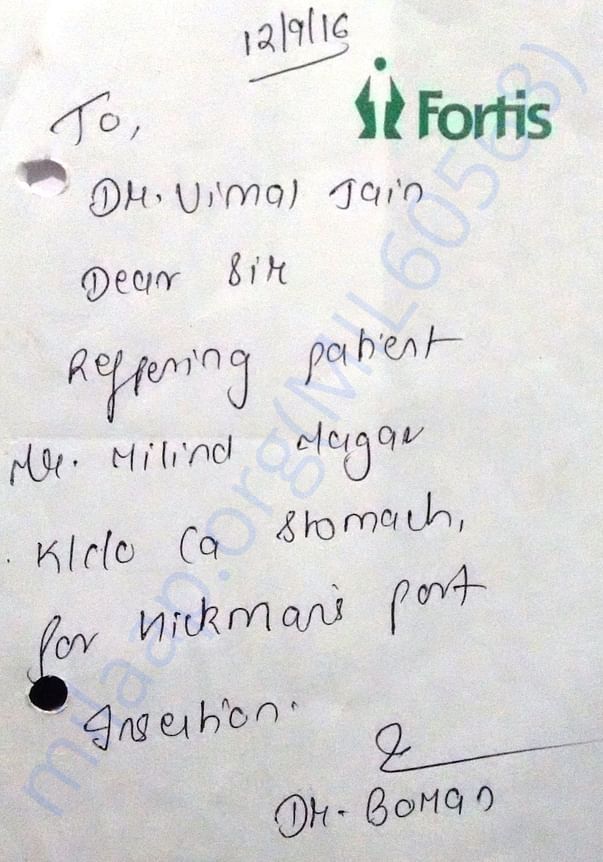 12/9/16
Fortis
To,
Dr. Vimal Jain
Dear Sir
Reffering patient
Mr. Milind Magar
K/c/o Ca stomach,
for Hickman's port
Insertion.
Dr. Boman
milaap.org(MIL60568)